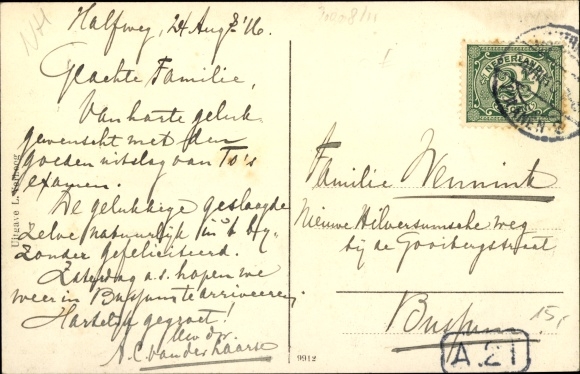 Halfweg, 24 Aug. '16.
Geachte Familie,
Van harte geluk
gewenscht met den
goeden uitslag van To's
examen.
De gelukkige geslaagde
zelve natuurlijk in 't by-
zonder gefeliciteerd.
Zaterdag a.s. hopen we
weer in Bussum te arriveeren,
Hartelijk gegroet!
A.C. van der Laarse
Uitgave L.
NEDERLAND
Familie Wennink
Nieuwe Hilversumsche weg
bij de Gooibergstraat
Bussum
15,-
A.21
9912
NH